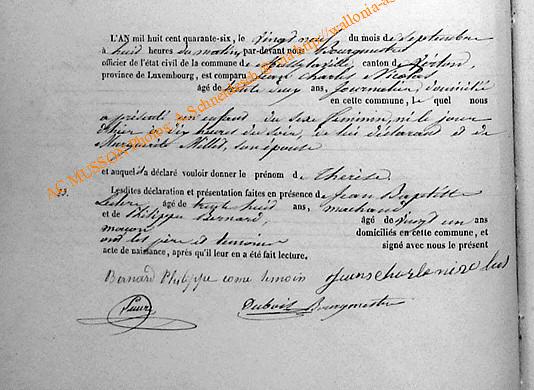 L'AN mil huit cent quarante-six, le vingt neuf du mois de Septembre
à huit heures du matin par-devant nous Bourgmestre
officier de l'état civil de la commune de canton de Virton
province de Luxembourg, est comparu Jean Charles Nicolas
âgé de trente deux ans, Journalier, domicilié
en cette commune, le quel nous
a présenté un enfant du sexe féminin, né le jour
d'hier à dix heures du soir, de lui déclarant et de
Marguerite son épouse
et auquel il a déclaré vouloir donner le prénom de Thérèse
Lesdites déclaration et présentation faites en présence de Jean Baptiste
âgé de trente huit ans, marchand
et de Philippe Bernard, âgé de vingt un ans
maçon domiciliés en cette commune, et
ont les père et témoins signé avec nous le présent
acte de naissance, après qu'il leur en a été fait lecture.
Bernard Philippe come temoin
Dubois Bourgmestre
AC MUSSON Photog. A. Schneidesch